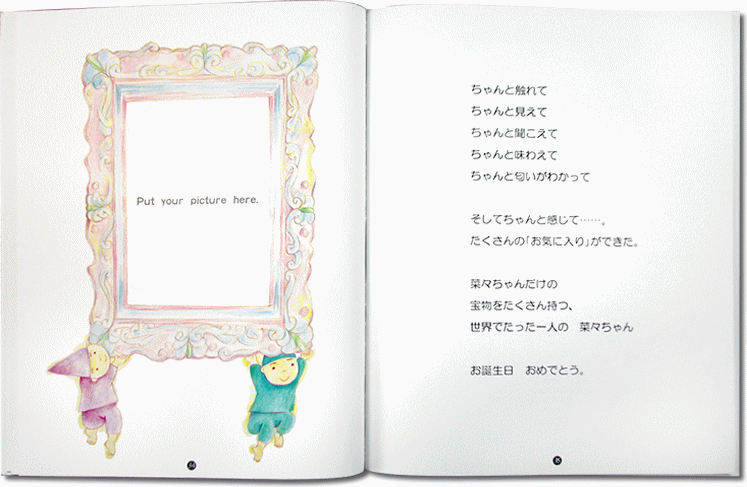 Put your picture here.
34
ちゃんと触れて
ちゃんと見えて
ちゃんと聞こえて
ちゃんと味わえて
ちゃんと匂いがわかって
そしてちゃんと感じて……。
たくさんの「お気に入り」ができた。
菜々ちゃんだけの
宝物をたくさん持つ、
世界でたった一人の　菜々ちゃん
お誕生日　おめでとう。
35